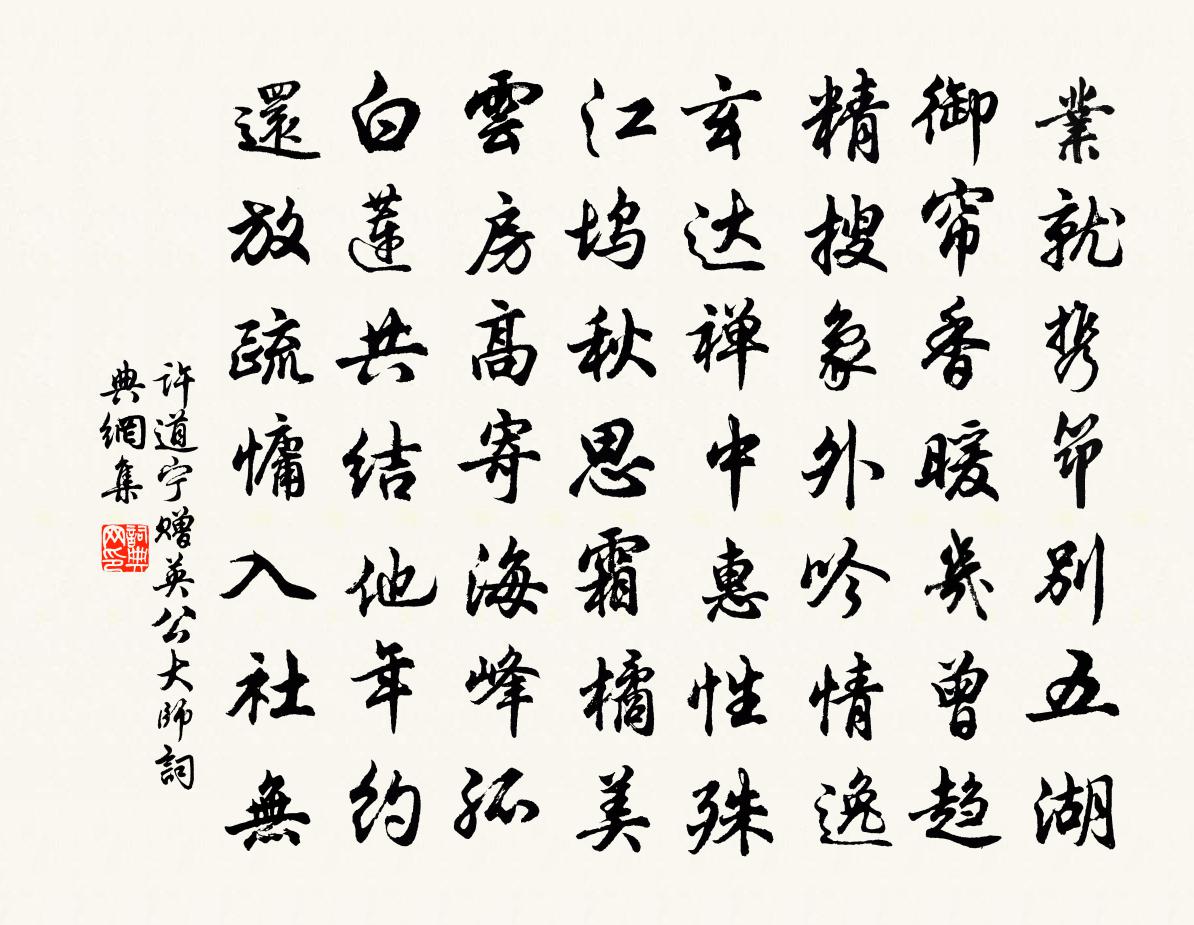 業就携筇別五湖
御帘香暖幾曾趋
精搜象外吟情逸
玄达禅中惠性殊
江坞秋思霜橘美
雲房高寄海峰孤
白蓮共结他年约
還放疏慵入社無
许道宁赠英公大師詞
典網集
詞典
网印